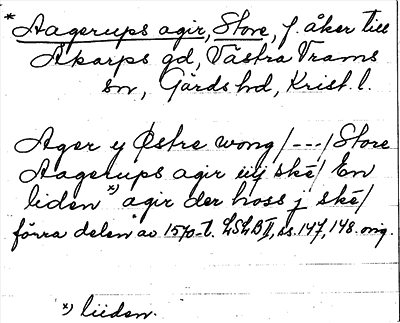 * Aagerups agir, Store, f. åker till
Åkarps gd, Västra Vrams
sn, Gärds hd, Krist. l.
Ager y Østre wong /---/ Store
Aagerups agir iiij ske/ En
liden *) agir der hoss j ske/
förra delen av 1570-t. LSLB II, ss. 147, 148. orig.
*) liiden.